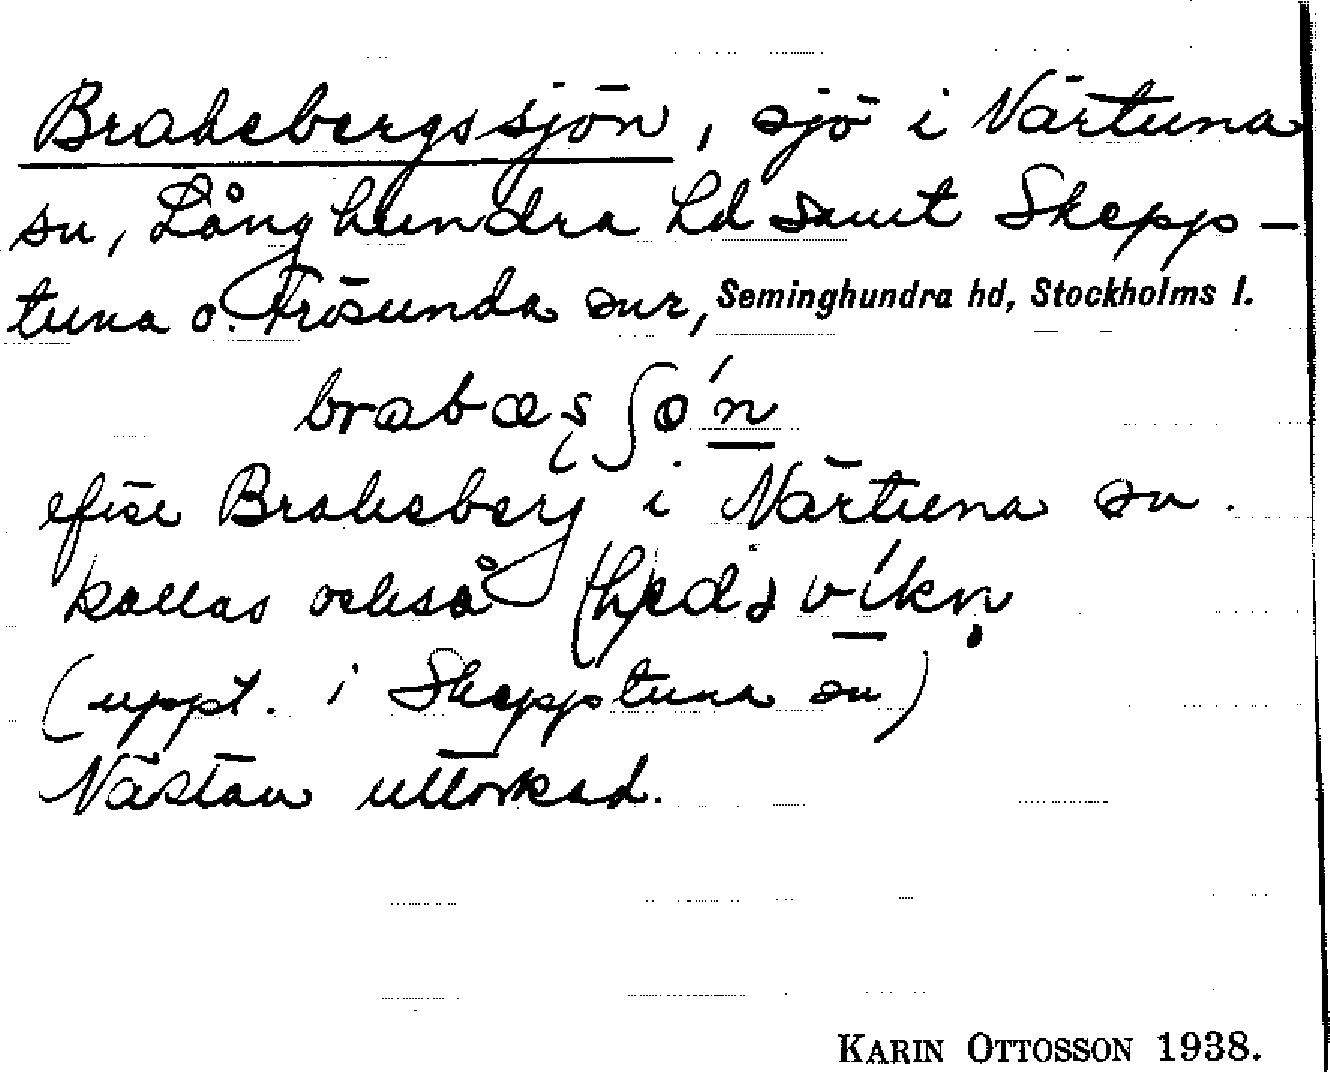 Brahebergssjön, sjö i Närtuna
sn, Långhundra hd samt Skepp-
tuna o. Frösunda snr, Seminghundra hd, Stockholms l.
efter Braheberg i Närtuna sn.
kallas också
(uppt. i Skepptuna sn)
Nästan uttorkad.
KARIN OTTOSSON 1938.